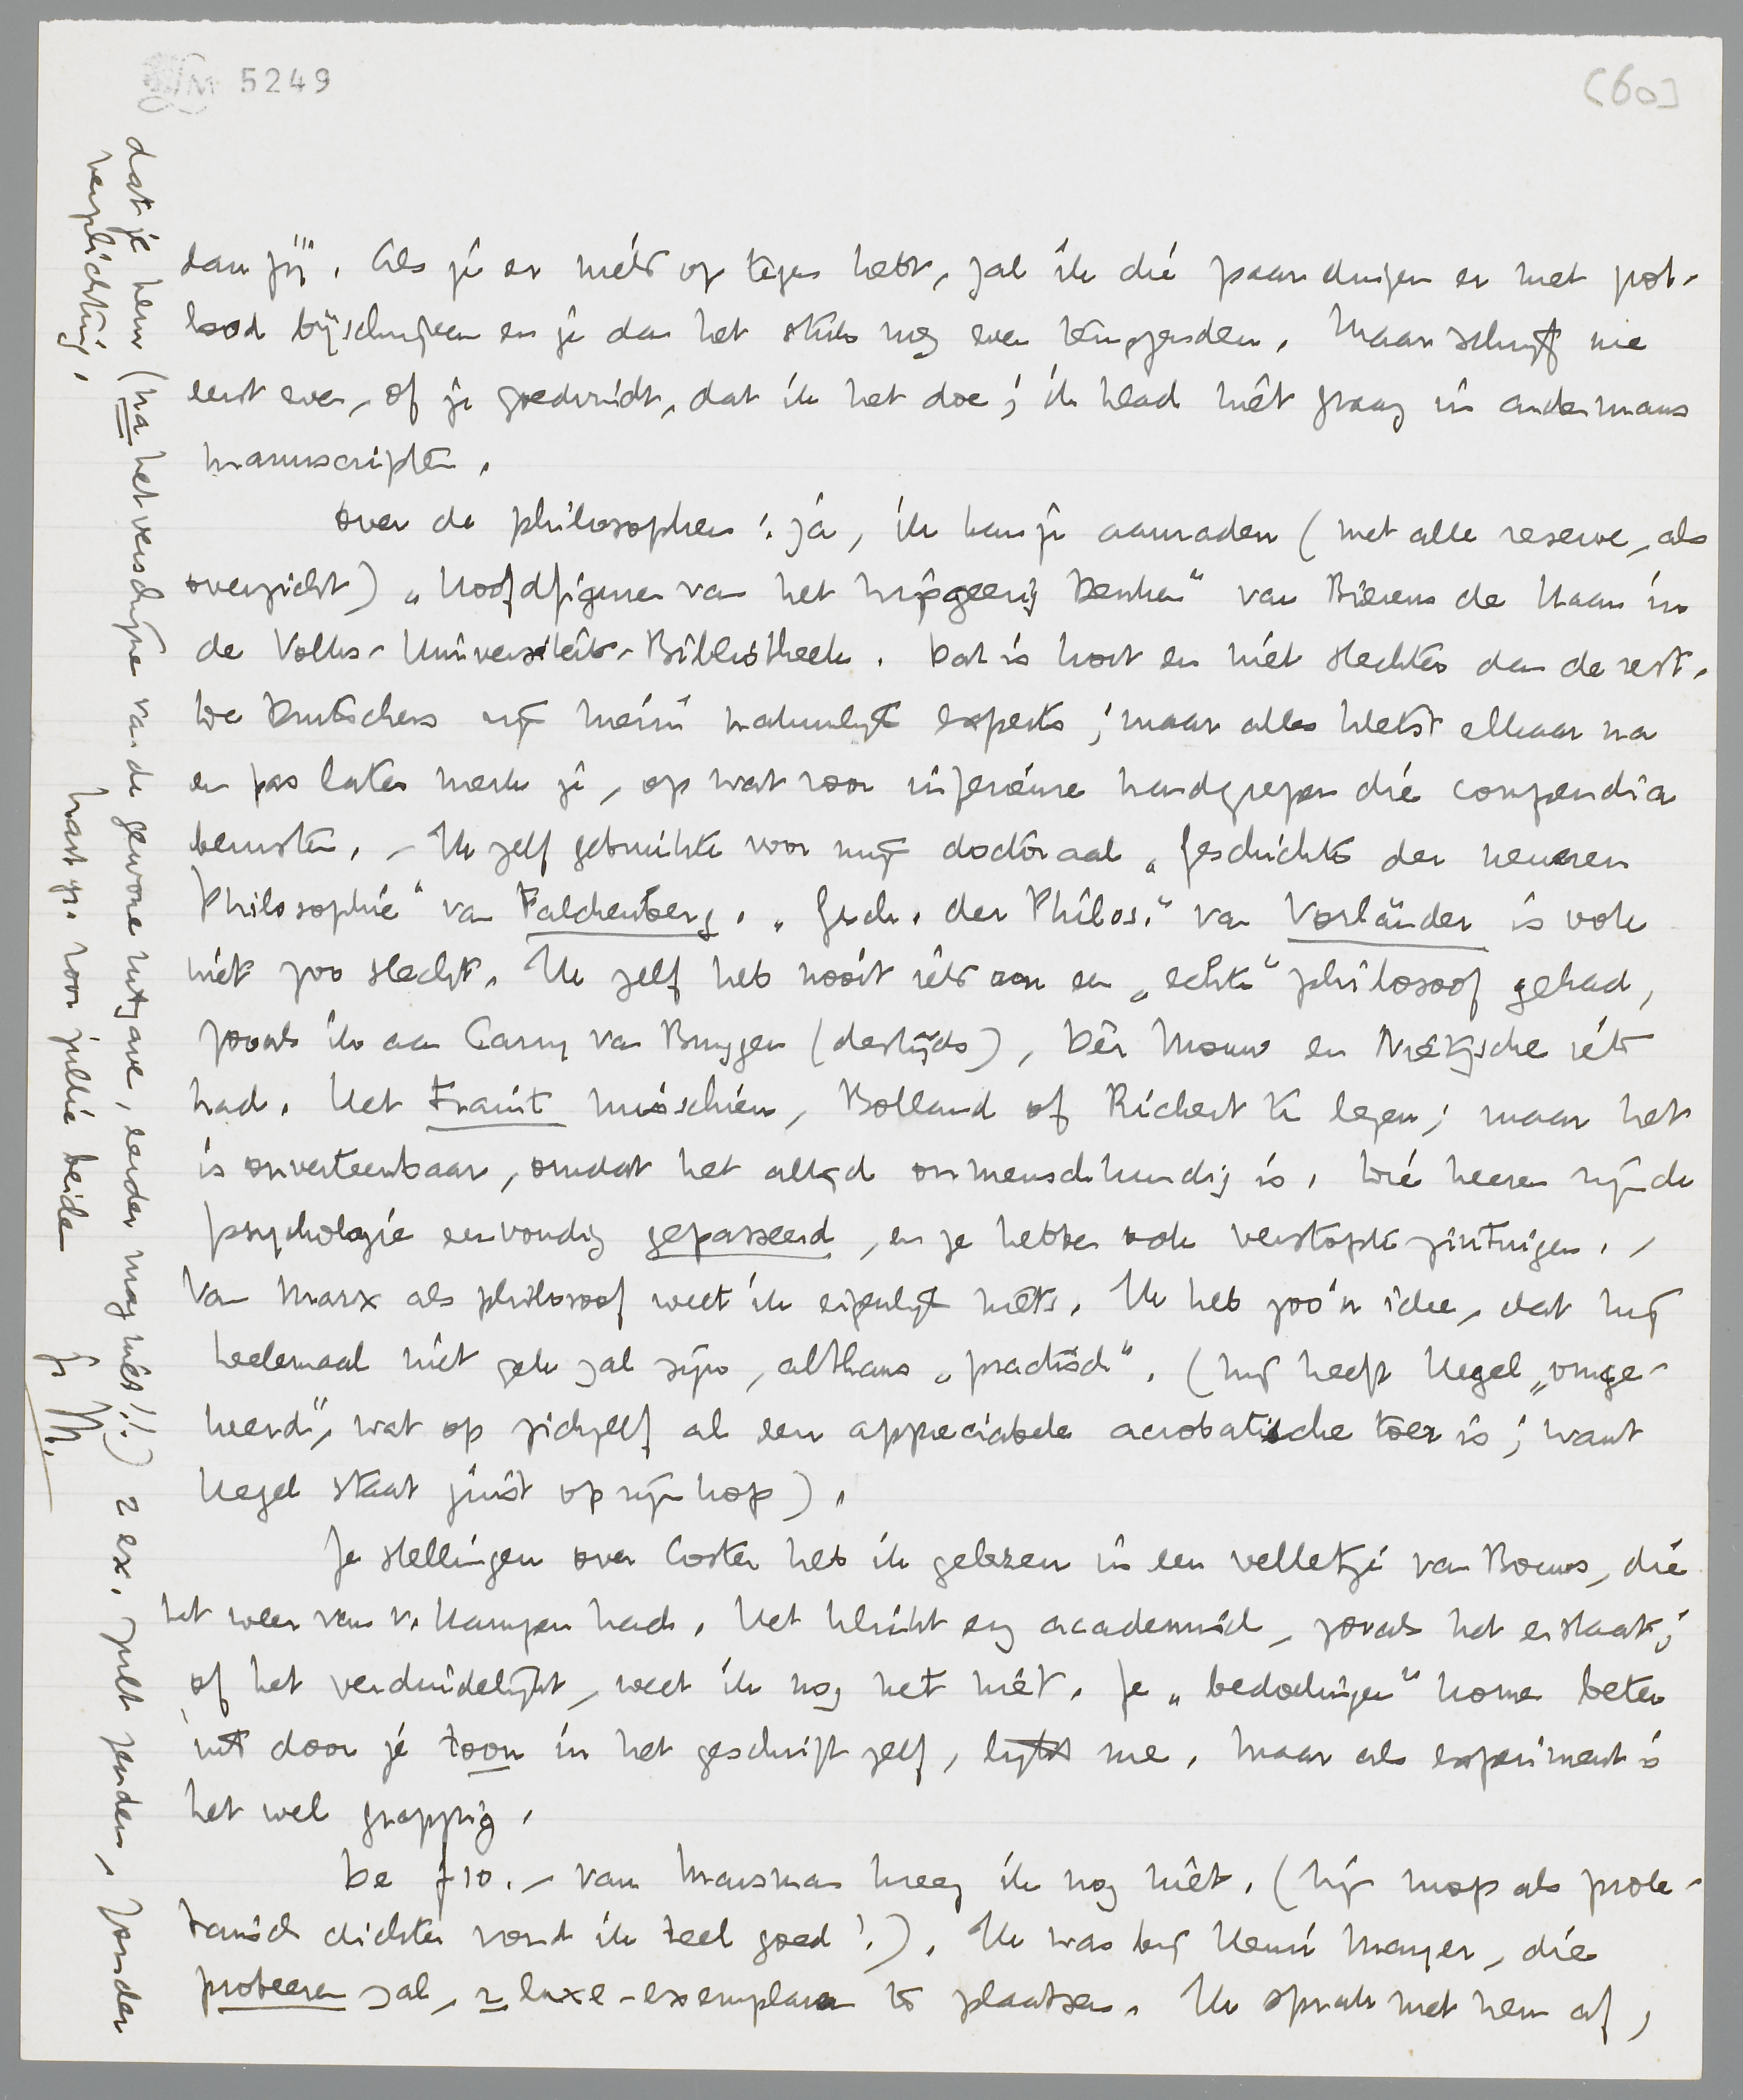 LM 5249
[60]
dan jij". Als je er niets op tegen hebt, zal ik die paar dingen er met pot-
lood bijschrijven en je dan het stuk nog even terugzenden. Maar schrijf me
eerst even, of je goedvindt, dat ik het doe; ik klad niet graag in andermans
manuscripten.
Over de philosophen: ja, ik kan je aanraden (met alle reserve, als
overzicht) „Hoofdfiguren van het wijsgeerig Denken" van Bierens de Haan in
de Volks-Universiteits-Bibliotheek. Dat is kort en niet slechter dan de rest.
De Duitschers zijn hierin natuurlijk experts; maar alles kletst elkaar na
en pas later merk je, op wat voor inferieure handgrepen die compendia
berusten. – Ik zelf gebruikte voor mijn doctoraal „Geschichte der neueren
Philosophie" van Falckenberg. „Gesch. der Philos." van Vorländer is ook
niet zoo slecht. Ik zelf heb nooit iets aan een „echte" philosoof gehad,
zooals ik aan Carry van Bruggen (destijds), Dèr Mouw en Nietzsche iets
had. Het traint misschien, Bolland of Rickert te lezen; maar het
is onverteerbaar, omdat het altijd onmenschkundig is. Die heeren zijn de
psychologie eenvoudig gepasseerd, en ze hebben ook verstopte zintuigen. –
Van Marx als philosoof weet ik eigenlijk niets. Ik heb zoo'n idee, dat hij
heelemaal niet gek zal zijn, althans „practisch". (hij heeft Hegel „omge-
keerd", wat op zichzelf al een appreciabele acrobatische toer is; want
Hegel staat juist op zijn kop).
Je stellingen over Coster heb ik gelezen in een velletje van Bouws, die
het weer van v. Kampen had. Het klinkt erg academisch, zooals het er staat;
of het verduidelijkt, weet ik nog net niet. Je „bedoelingen" komen beter
uit door je toon in het geschrift zelf, lijkt me. Maar als experiment is
het wel grappig.
De ƒ10.– van Marsman kreeg ik nog niet. (Zijn mop als prole-
tarisch dichter vond ik heel goed!). Ik was bij Henri Mayer, die
probeeren zal, 2 luxe-exemplaren te plaatsen. Ik sprak met hem af,
dat je hem (na het verschijnen van de gewone uitgave, eerder mag niet!!) 2 ex. zult zenden, zonder
verplichting.
hart. gr. voor jullie beiden
je M.